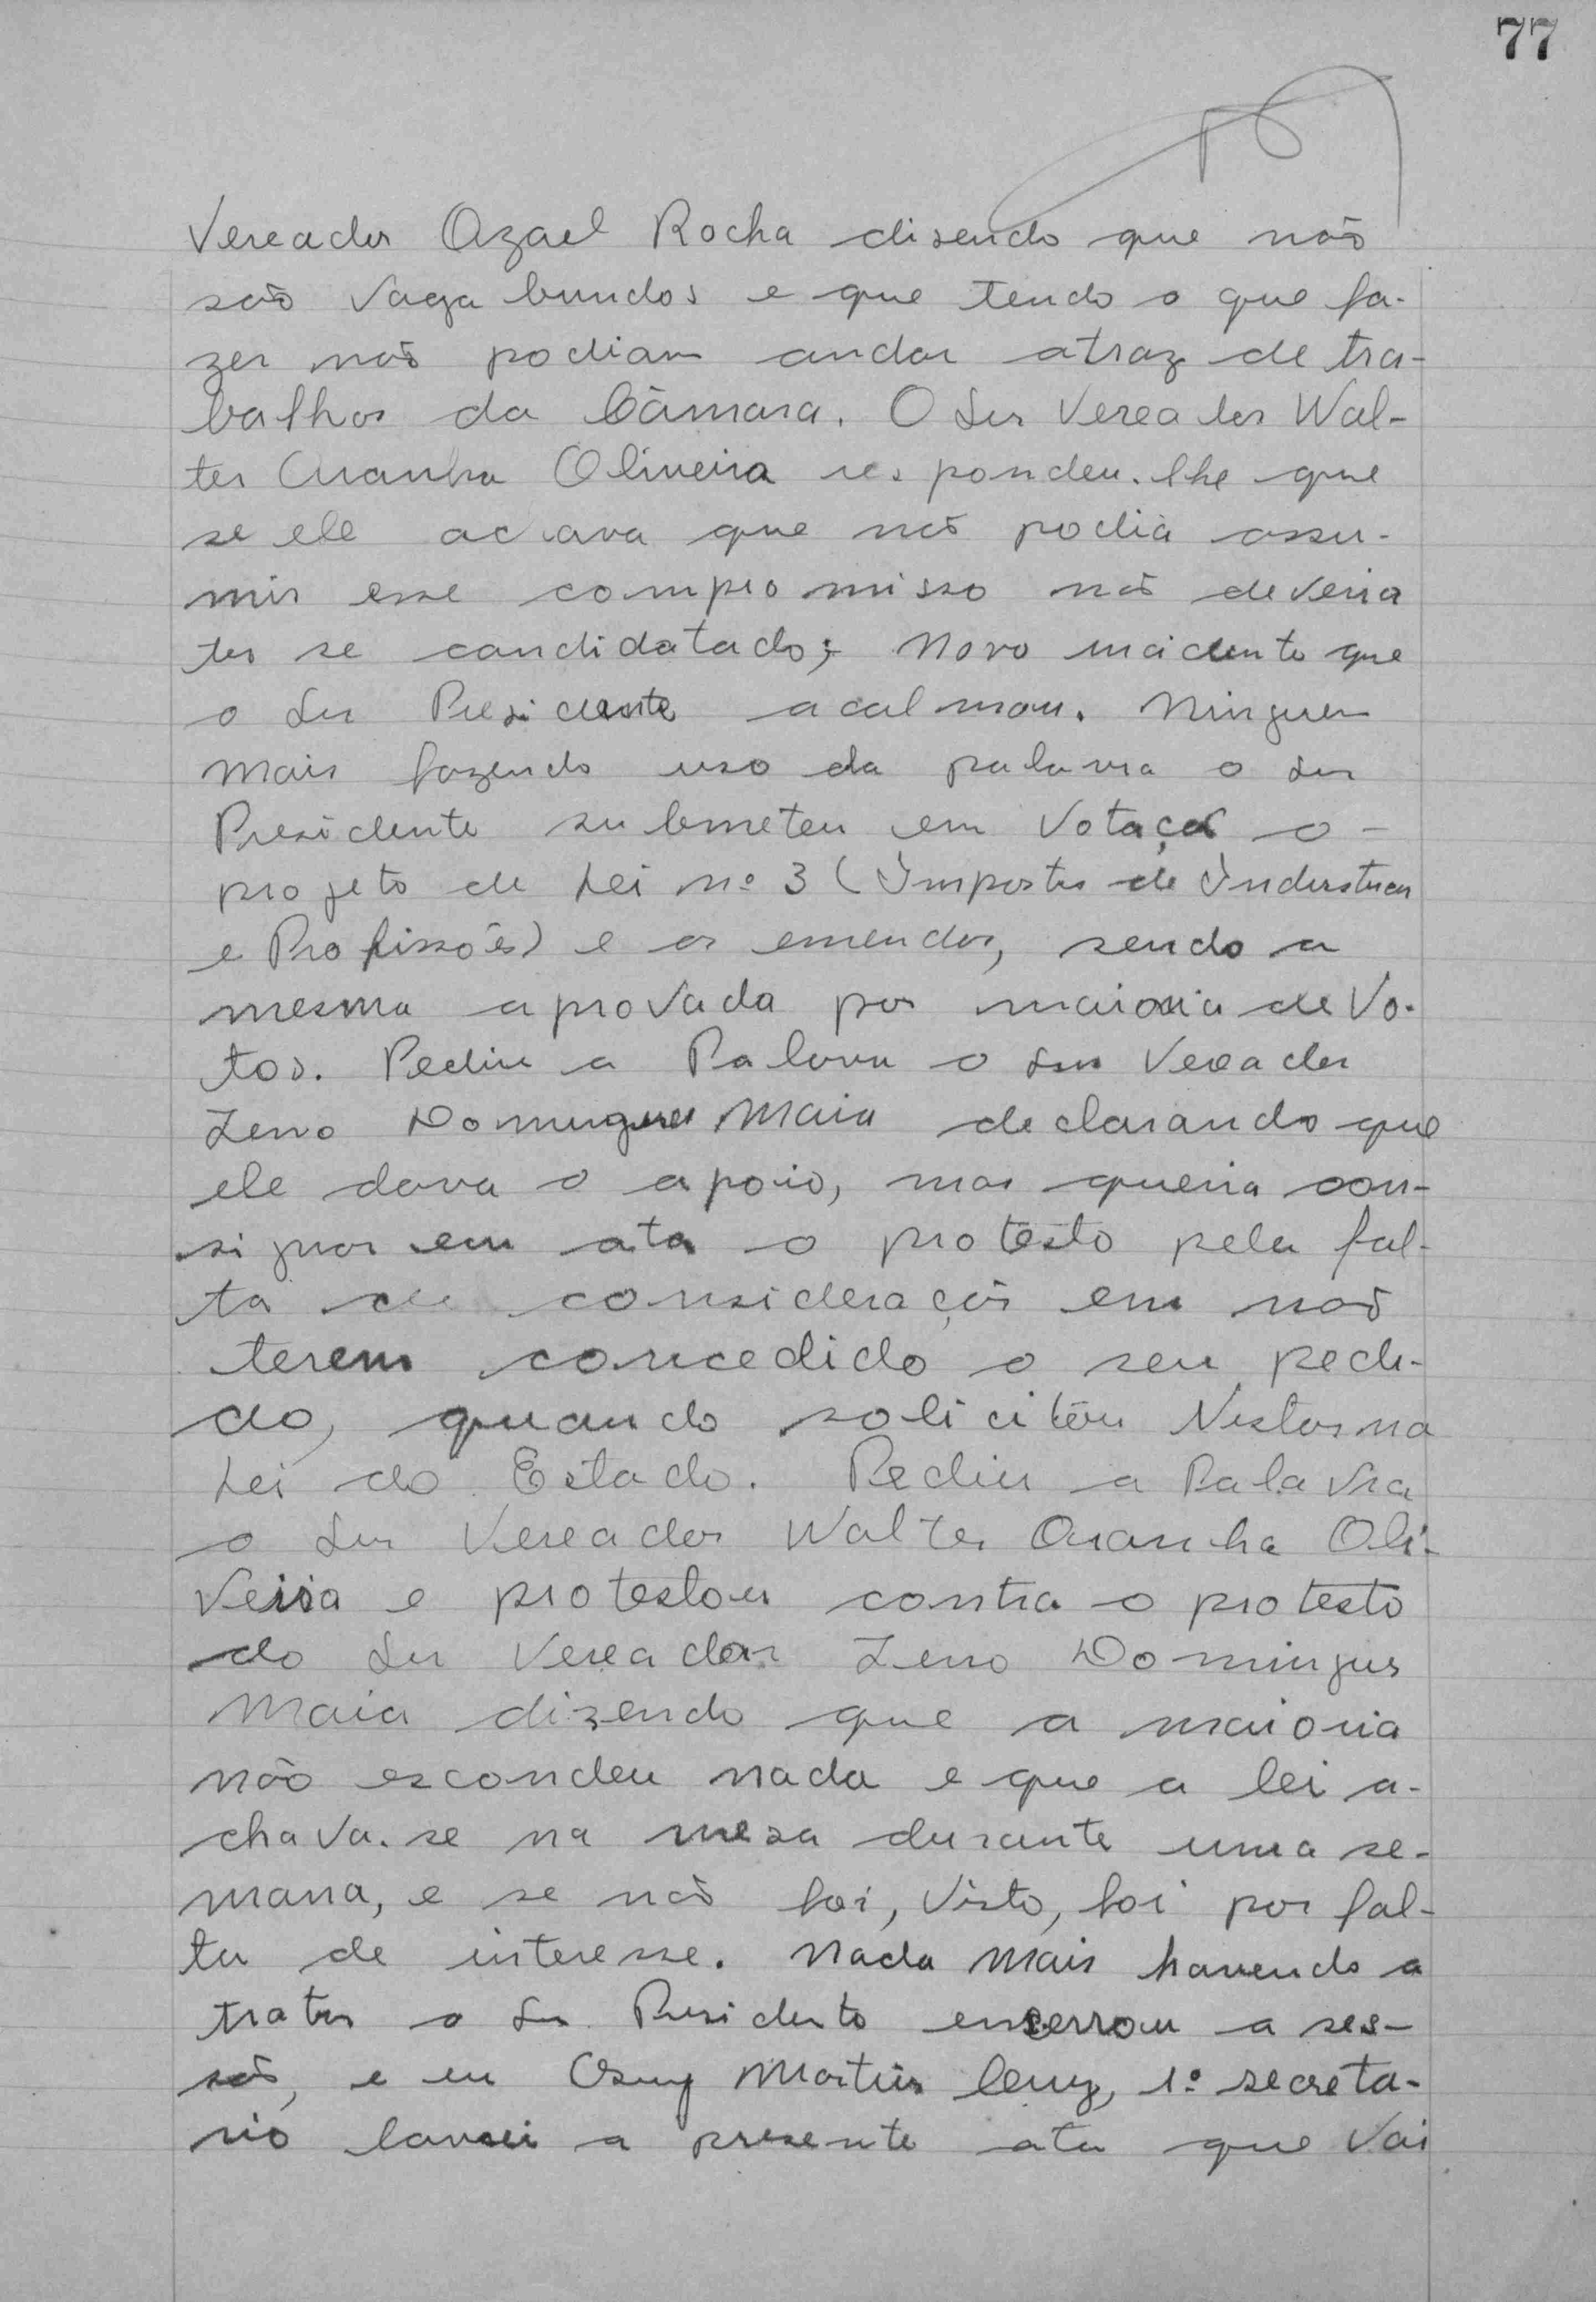 77
Vereador Azael Rocha disendo que não
são vagabundos e que tendo o que fa-
zer não podiam andar atraz de tra-
balhos da Câmara. O Snr Vereador Wal-
ter Aranha Oliveira respondeu-lhe que
se ele achava que não podia assu-
mir esse compromisso não deveria
ter se candidatado; novo incidente que
o Snr Presidente acalmou. Ninguem
mais fazendo uso da palavra o Snr
Presidente submeteu em votação o
projeto de Lei nº 3 (Impostos de Industrias
e Profissões) e as emendas, sendo a
mesma aprovada por maioria de vo-
tos. Pediu a Palavra o Snr Vereador
Zeno Domingues Maia declarando que
ele dava o apoio, mas queria con-
signar em ata o protesto pela fal-
ta de consideração em não
terem concedido o seu pedi-
do, quando solicitou Vistas na
Lei do Estado. Pediu a Palavra
o Snr Vereador Walter Aranha Oli-
veira e protestou contra o protesto
do Snr Vereador Zeno Domingues
Maia dizendo que a maioria
não escondeu nada e que a lei a-
chava-se na mesa durante uma se-
mana, e se não foi, visto, foi por fal-
ta de interesse. Nada mais havendo a
tratar o Snr Presidente encerrou a ses-
são, e eu Osny Martins Cruz, 1º secreta-
rio lavrei a presente ata que vai